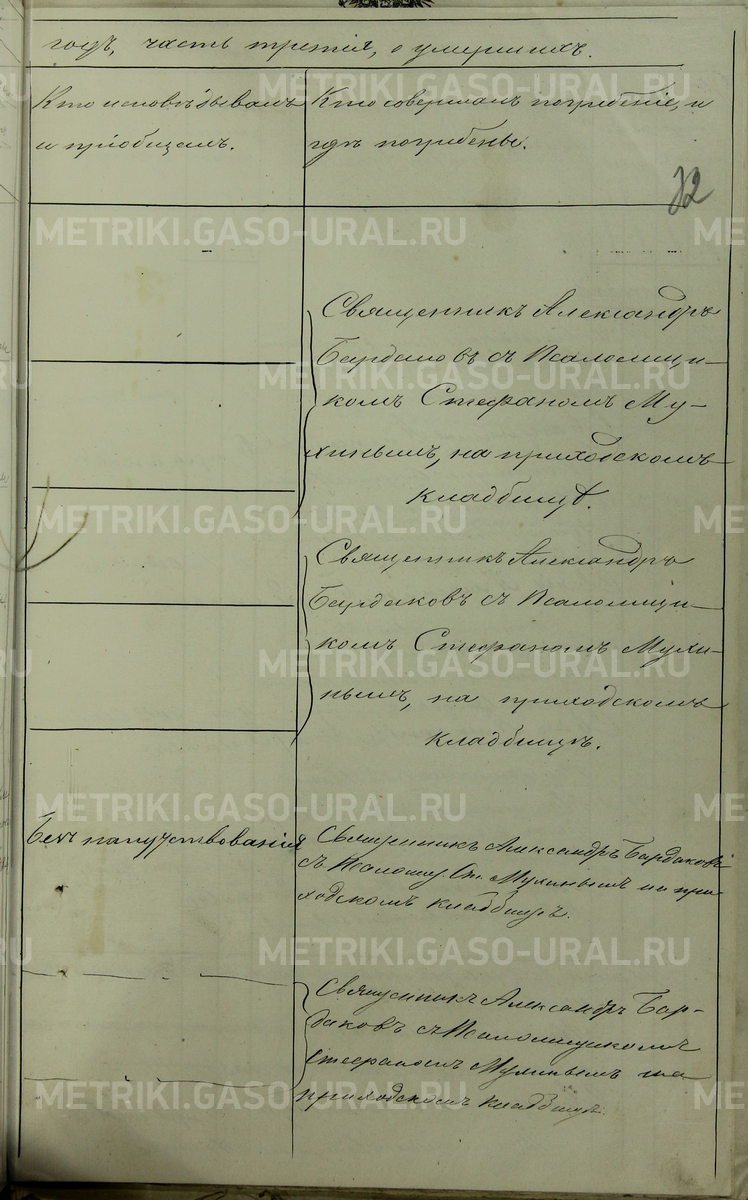 годъ, часть третія, о умершихъ.
Кто исповѣдывалъ
и пріобщалъ.
Кто совершалъ погребеніе, и
гдѣ погребены.
32
Священникъ Александръ
Бардаковъ съ Псаломщи-
комъ Стефаномъ Му-
хинымъ, на приходскомъ
кладбищѣ.
Священникъ Александръ
Бардаковъ съ Псаломщи-
комъ Стефаномъ Мухи-
нымъ, на приходскомъ
кладбищѣ.
Безъ напутствованія
Священникъ Александръ Бардаковъ
съ Псаломщ. Ст. Мухинымъ на при-
ходскомъ кладбищѣ.
Священникъ Александръ Бар-
даковъ съ Псаломщикомъ
Стефаномъ Мухинымъ на
приходскомъ кладбищѣ.
METRIKI.GASO-URAL.RU